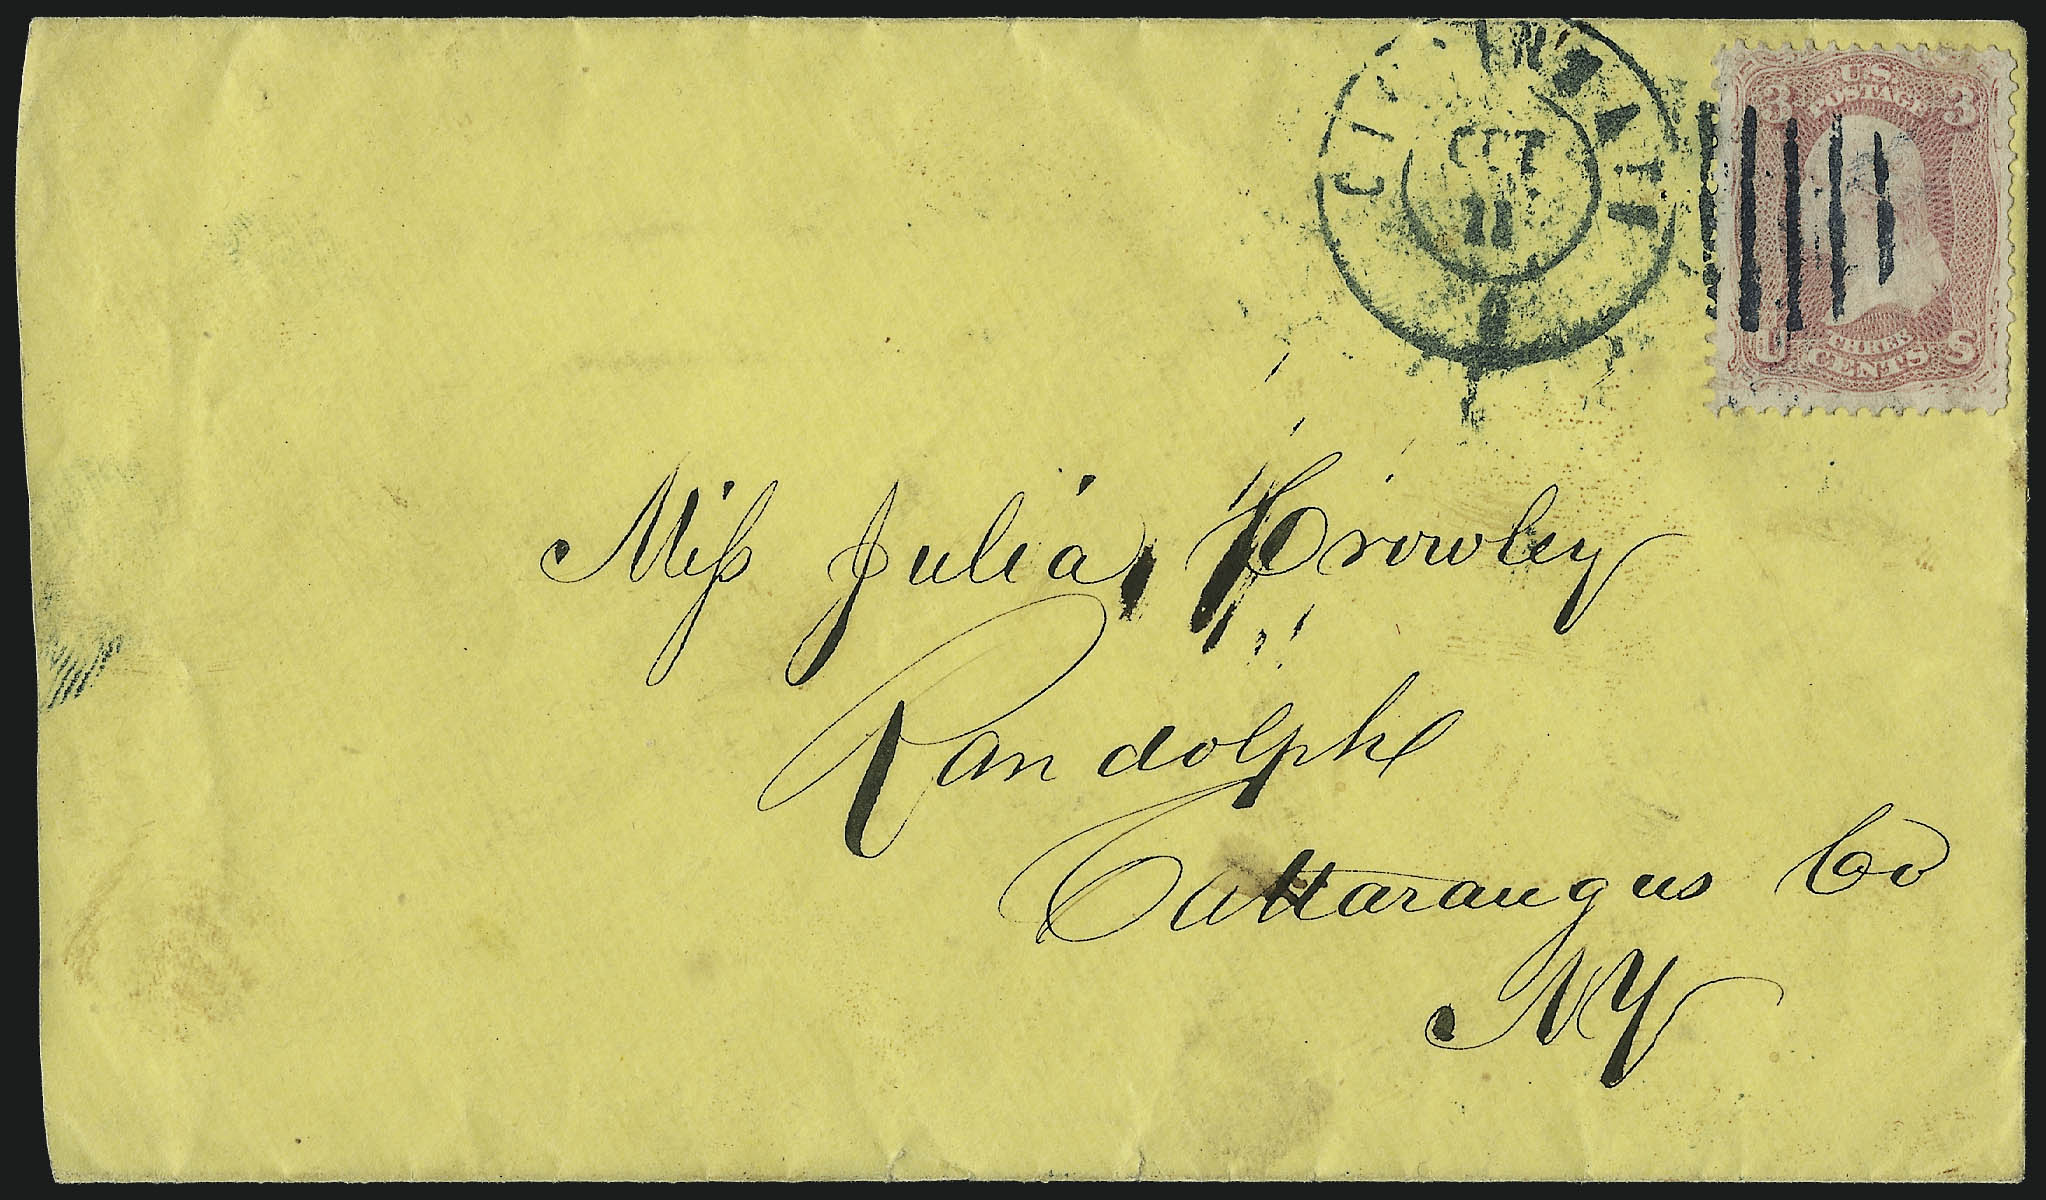 CINCINNATI
OCT
11
U.S.
POSTAGE
3 3
THREE
U CENTS S
Miss Julia Crowley
Randolph
Cattaraugus Co
NY